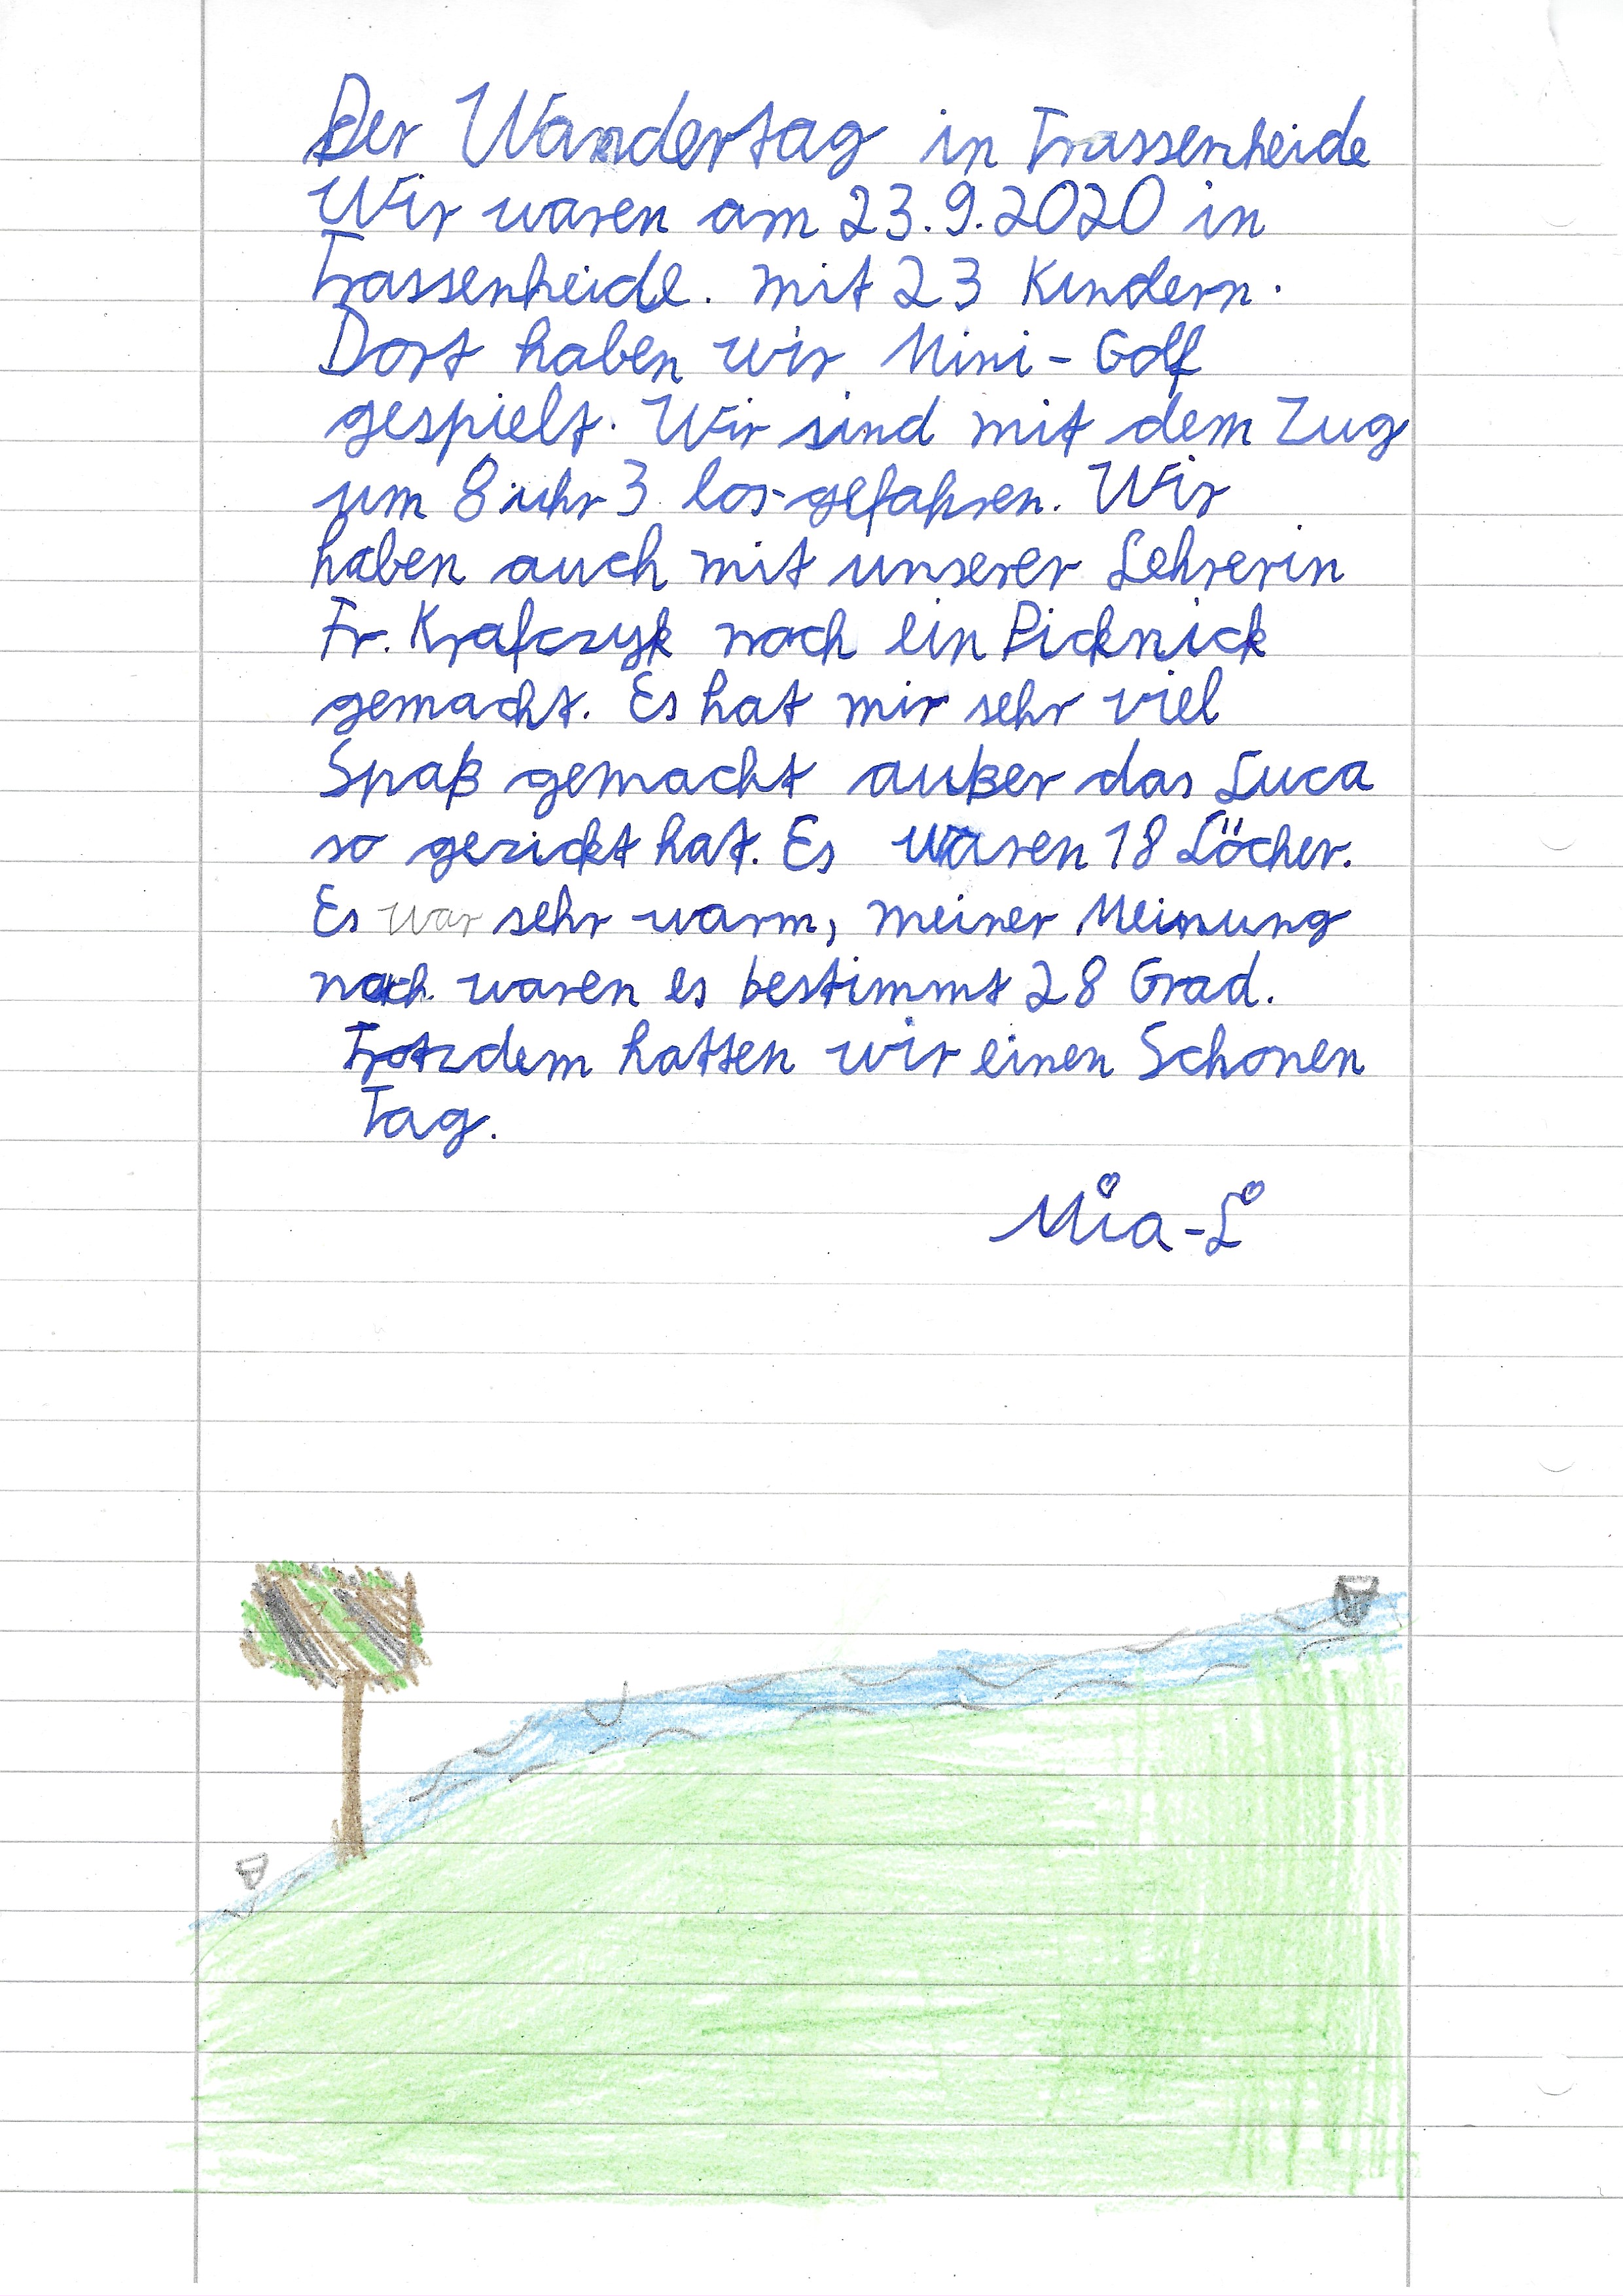 Der Wandertag in Trassenheide
Wir waren am 23.9.2020 in
Trassenheide. mit 23 Kindern.
Dort haben wir Mini-Golf
gespielt. Wir sind mit dem Zug
um 8 uhr 3 los-gefahren. Wir
haben auch mit unserer Lehrerin
Fr. Krafczyk noch ein Picknick
gemacht. Es hat mir sehr viel
Spaß gemacht außer das Luca
so gezickt hat. Es waren 18 Löcher.
Es war sehr warm, meiner Meinung
nach waren es bestimmt 28 Grad.
Trotzdem hatten wir einen Schonen
Tag.
Mia-L